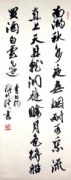 南湖秋水夜無烟耐可乘流
直上天且就洞庭賒月色將船
買酒白雲邊